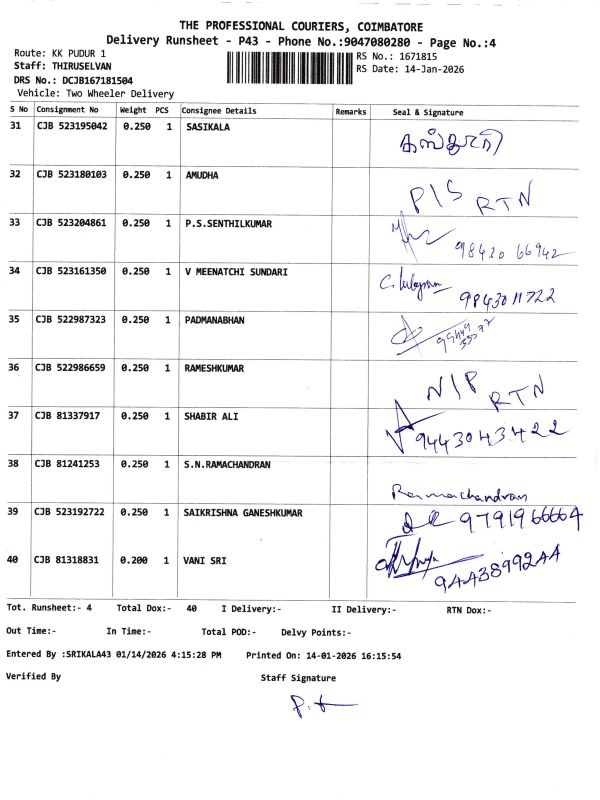 THE PROFESSIONAL COURIERS, COIMBATORE
Delivery Runsheet - P43 - Phone No.:9047080280 - Page No.:4
Route: KK PUDUR 1
Staff: THIRUSELVAN
DRS No.: DCJB167181504
Vehicle: Two Wheeler Delivery
RS No.: 1671815
RS Date: 14-Jan-2026
S No Consignment No Weight PCS Consignee Details Remarks Seal & Signature
31 CJB 523195042 0.250 1 SASIKALA கஸ்தூரி
32 CJB 523180103 0.250 1 AMUDHA P/S RTN
33 CJB 523204861 0.250 1 P.S.SENTHILKUMAR 98430 66942
34 CJB 523161350 0.250 1 V MEENATCHI SUNDARI 9843011722
35 CJB 522987323 0.250 1 PADMANABHAN
36 CJB 522986659 0.250 1 RAMESHKUMAR N/P RTN
37 CJB 81337917 0.250 1 SHABIR ALI 9443043422
38 CJB 81241253 0.250 1 S.N.RAMACHANDRAN Ramachandran
39 CJB 523192722 0.250 1 SAIKRISHNA GANESHKUMAR 9791966664
40 CJB 81318831 0.200 1 VANI SRI 9443899244
Tot. Runsheet:- 4 Total Dox:- 40 I Delivery:- II Delivery:- RTN Dox:-
Out Time:- In Time:- Total POD:- Delvy Points:-
Entered By :SRIKALA43 01/14/2026 4:15:28 PM Printed On: 14-01-2026 16:15:54
Verified By Staff Signature